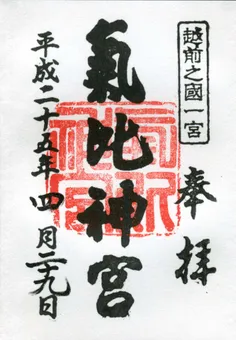 越前之國一宮
奉拝
氣比神宮
平成二十五年四月二十九日